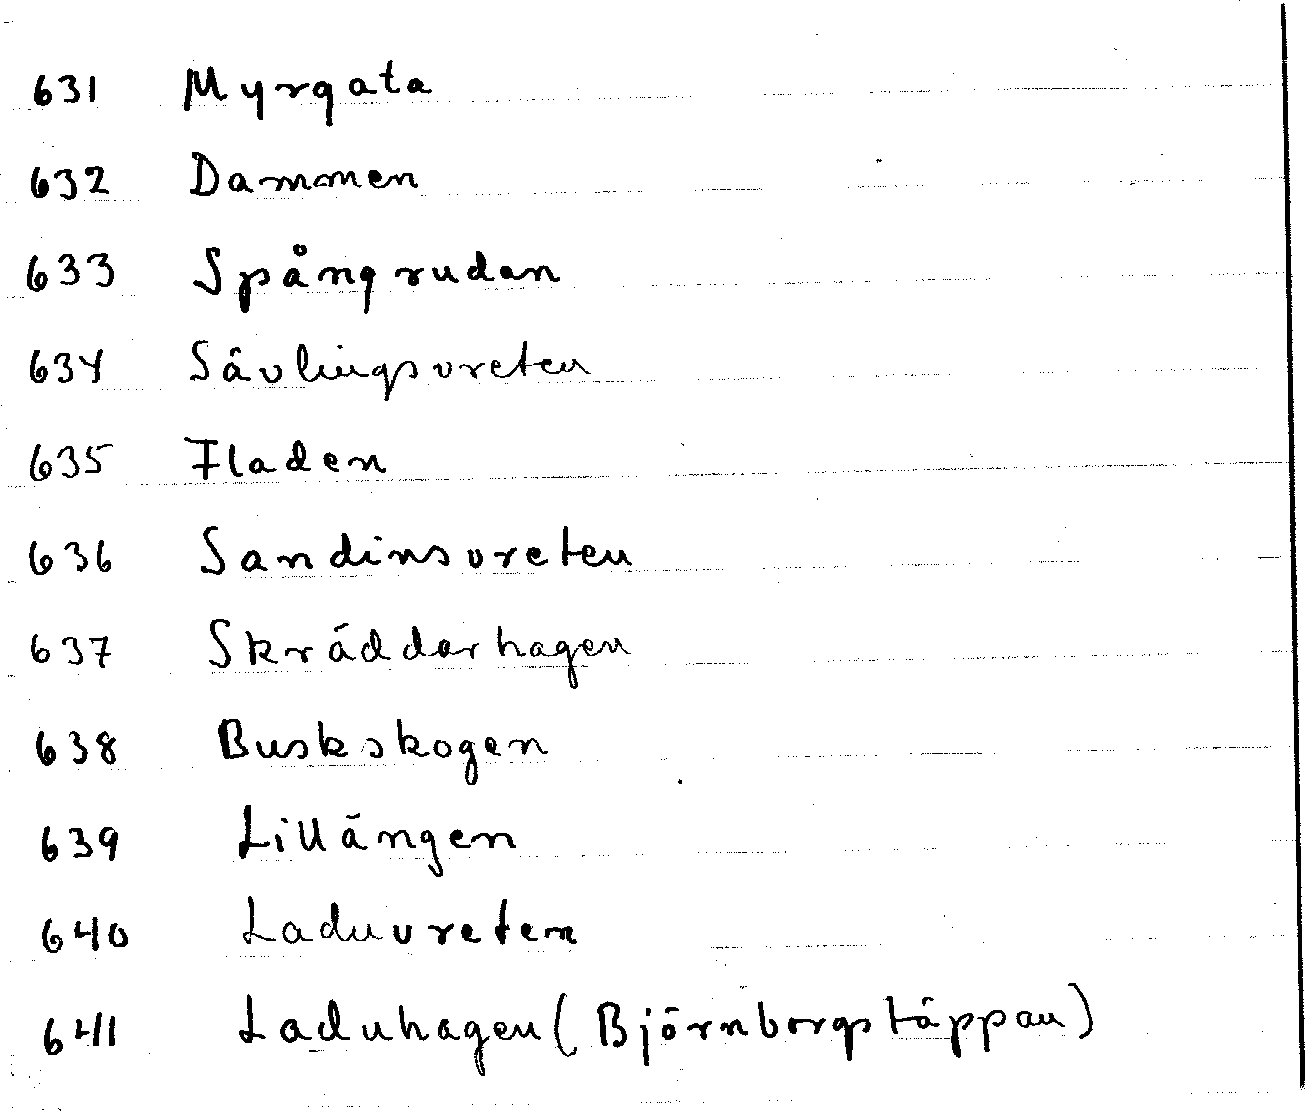 631 Myrgata
632 Dammen
633 Spångrudan
634 Sävlingsvreten
635 Fladen
636 Sandinsvreten
637 Skräddarhagen
638 Buskskogen
639 Lillängen
640 Laduvreten
641 Laduhagen (Björnborgstäppan)